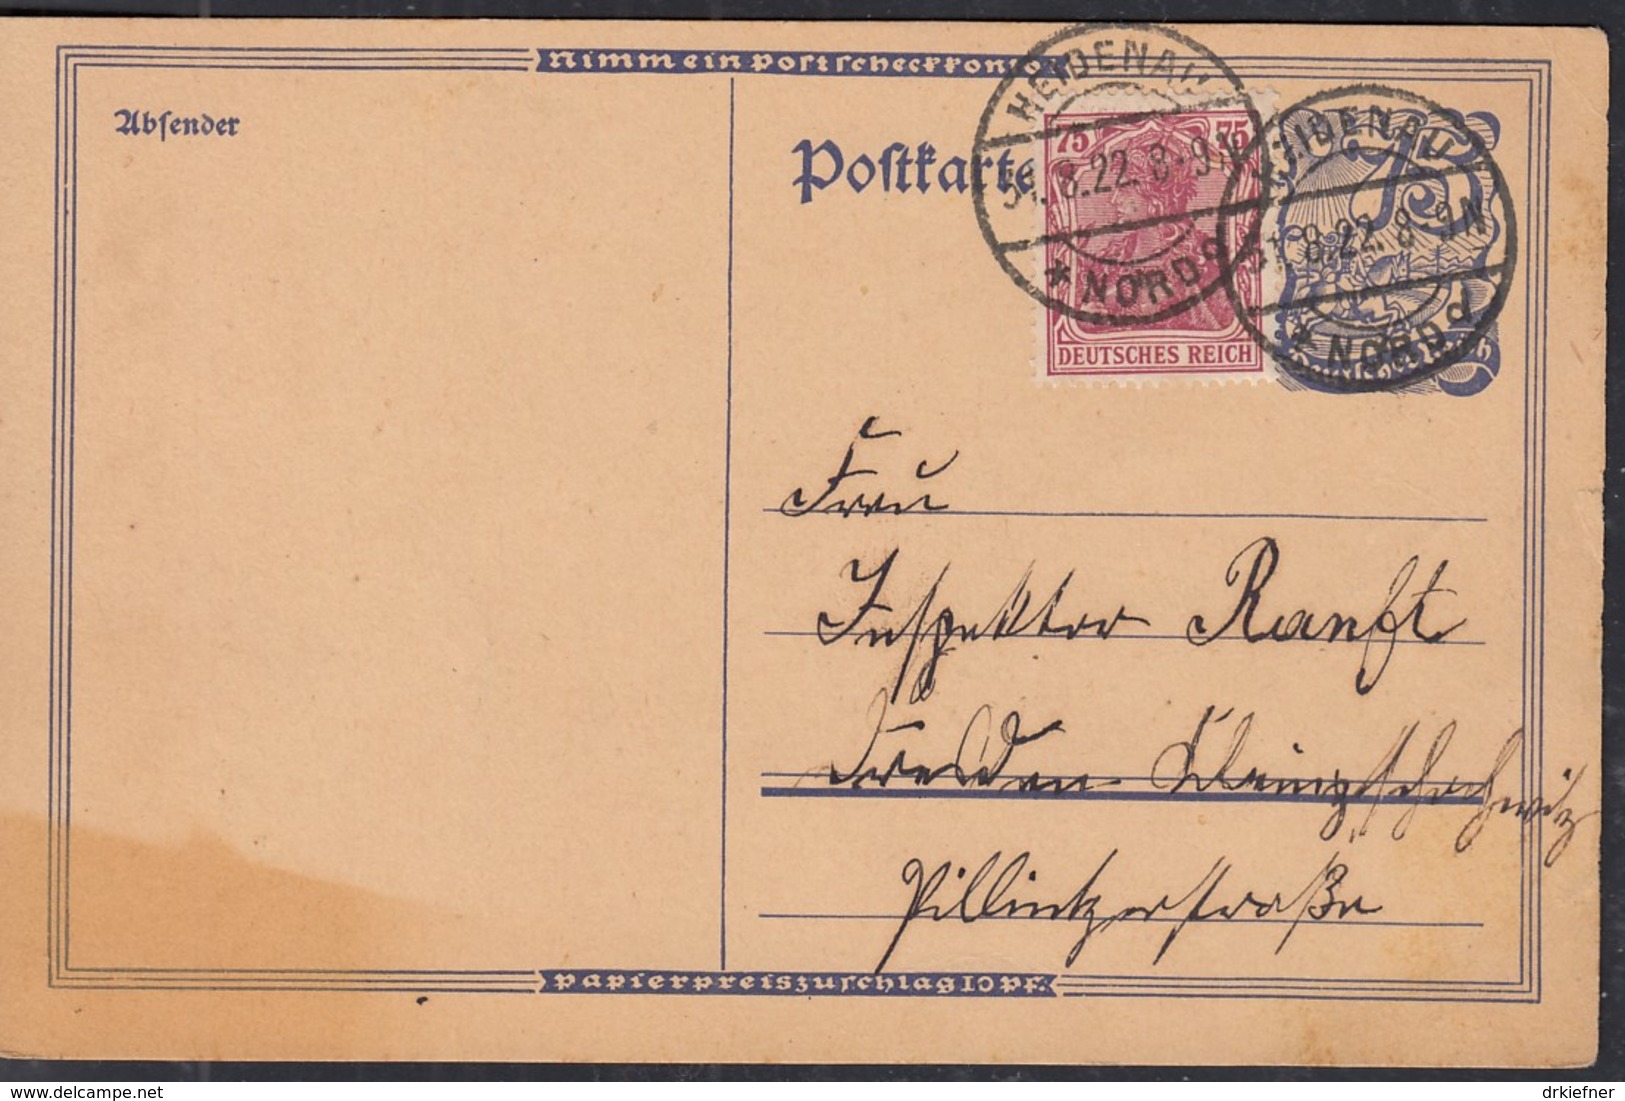 Nimm ein Postscheckkonto
Absender
Postkarte
75 75
DEUTSCHES REICH
HEIDENAU
31. 8.22. 8-9N
* NORD
HEIDENAU
31. 8.22. 8-9N
* NORD
75
Deutsches Reich
Frau
Inspektor Ranft
Dresden-Kleinzschachwitz
Pillnitzerstraße
Papierpreiszuschlag 10 Pf.
delcampe.net
drkiefner